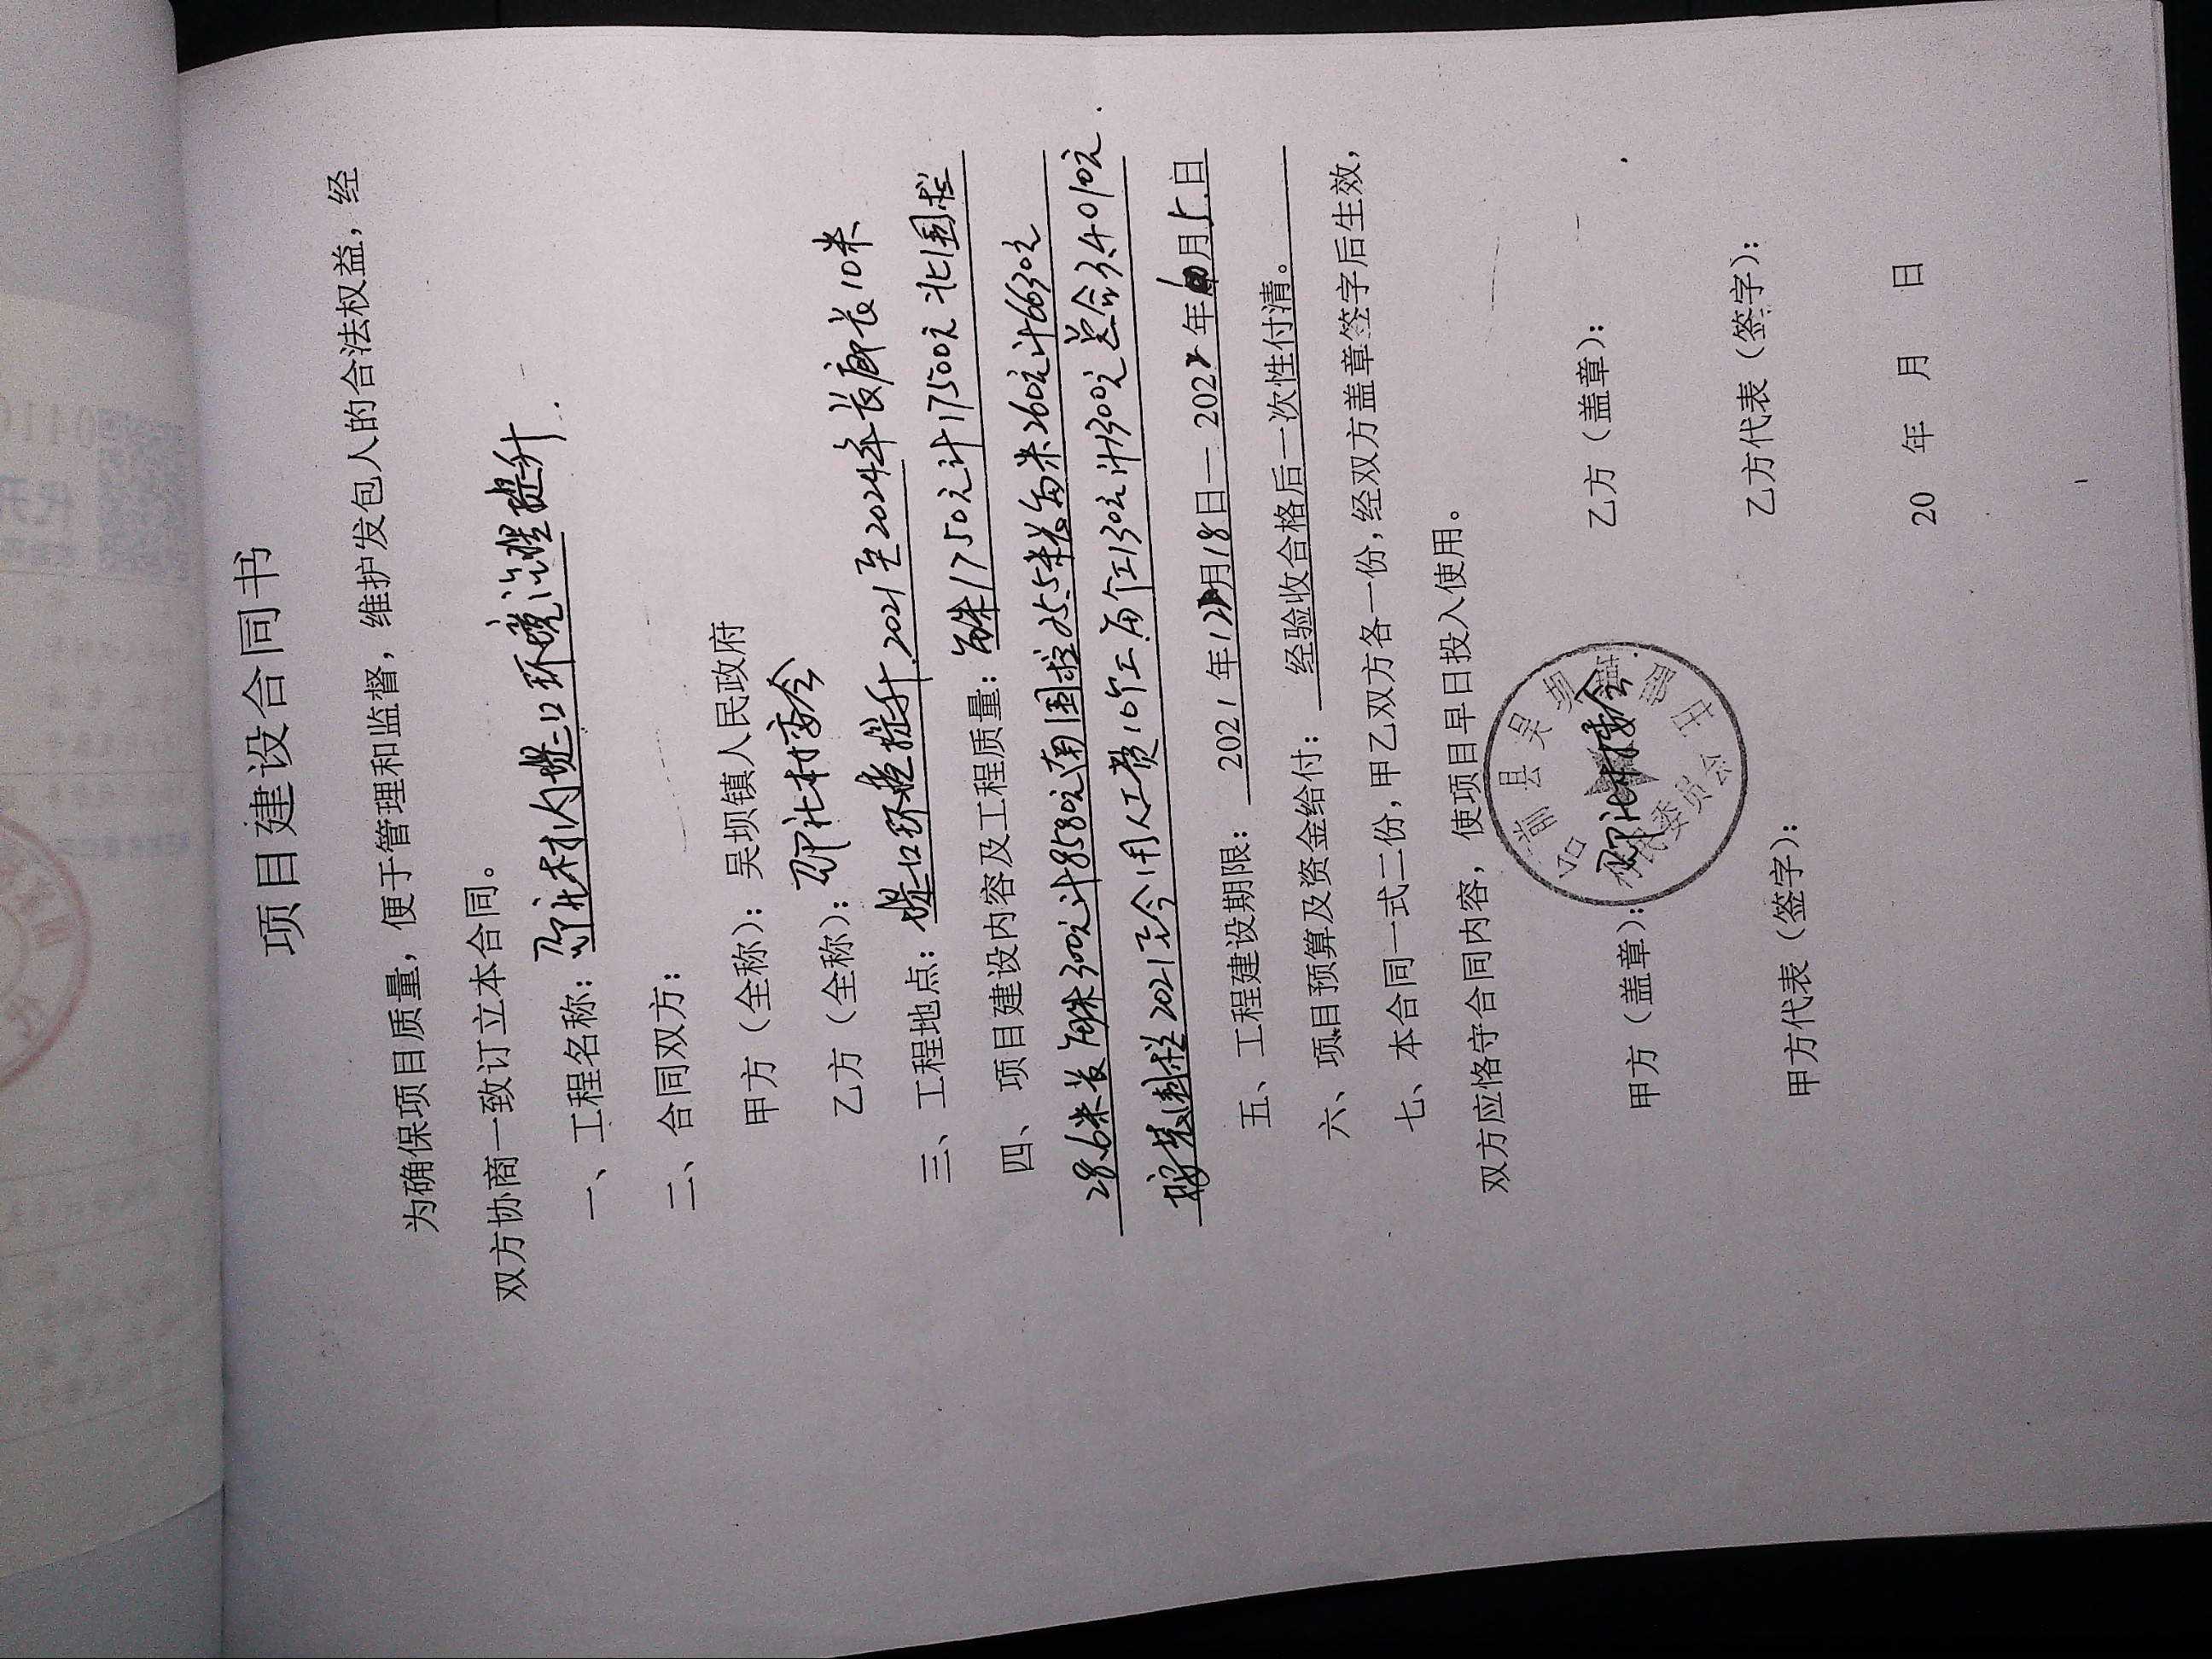 项目建设合同书
为确保项目质量，便于管理和监督，维护发包人的合法权益，经
双方协商一致订立本合同。
一、工程名称：村内堤口环境治理提升
二、合同双方：
甲方（全称）：吴坝镇人民政府
乙方（全称）：北村委会
三、工程地点：堤口环境提升.2021至2024年长廊长10米
四、项目建设内容及工程质量：每米1750元计17500元北围栏
28.6米长每米300元计8580元南围栏25.5米长每米260元计6630元
围栏2021至今用人工费10个工.每个工130元计1300元总合34010元.
五、工程建设期限：2021年12月18日—2022年月5日
六、项目预算及资金给付：经验收合格后一次性付清。
七、本合同一式二份，甲乙双方各一份，经双方盖章签字后生效，
双方应恪守合同内容，使项目早日投入使用。
甲方（盖章）：北村委会 乙方（盖章）：
甲方代表（签字）： 乙方代表（签字）：
20 年 月 日